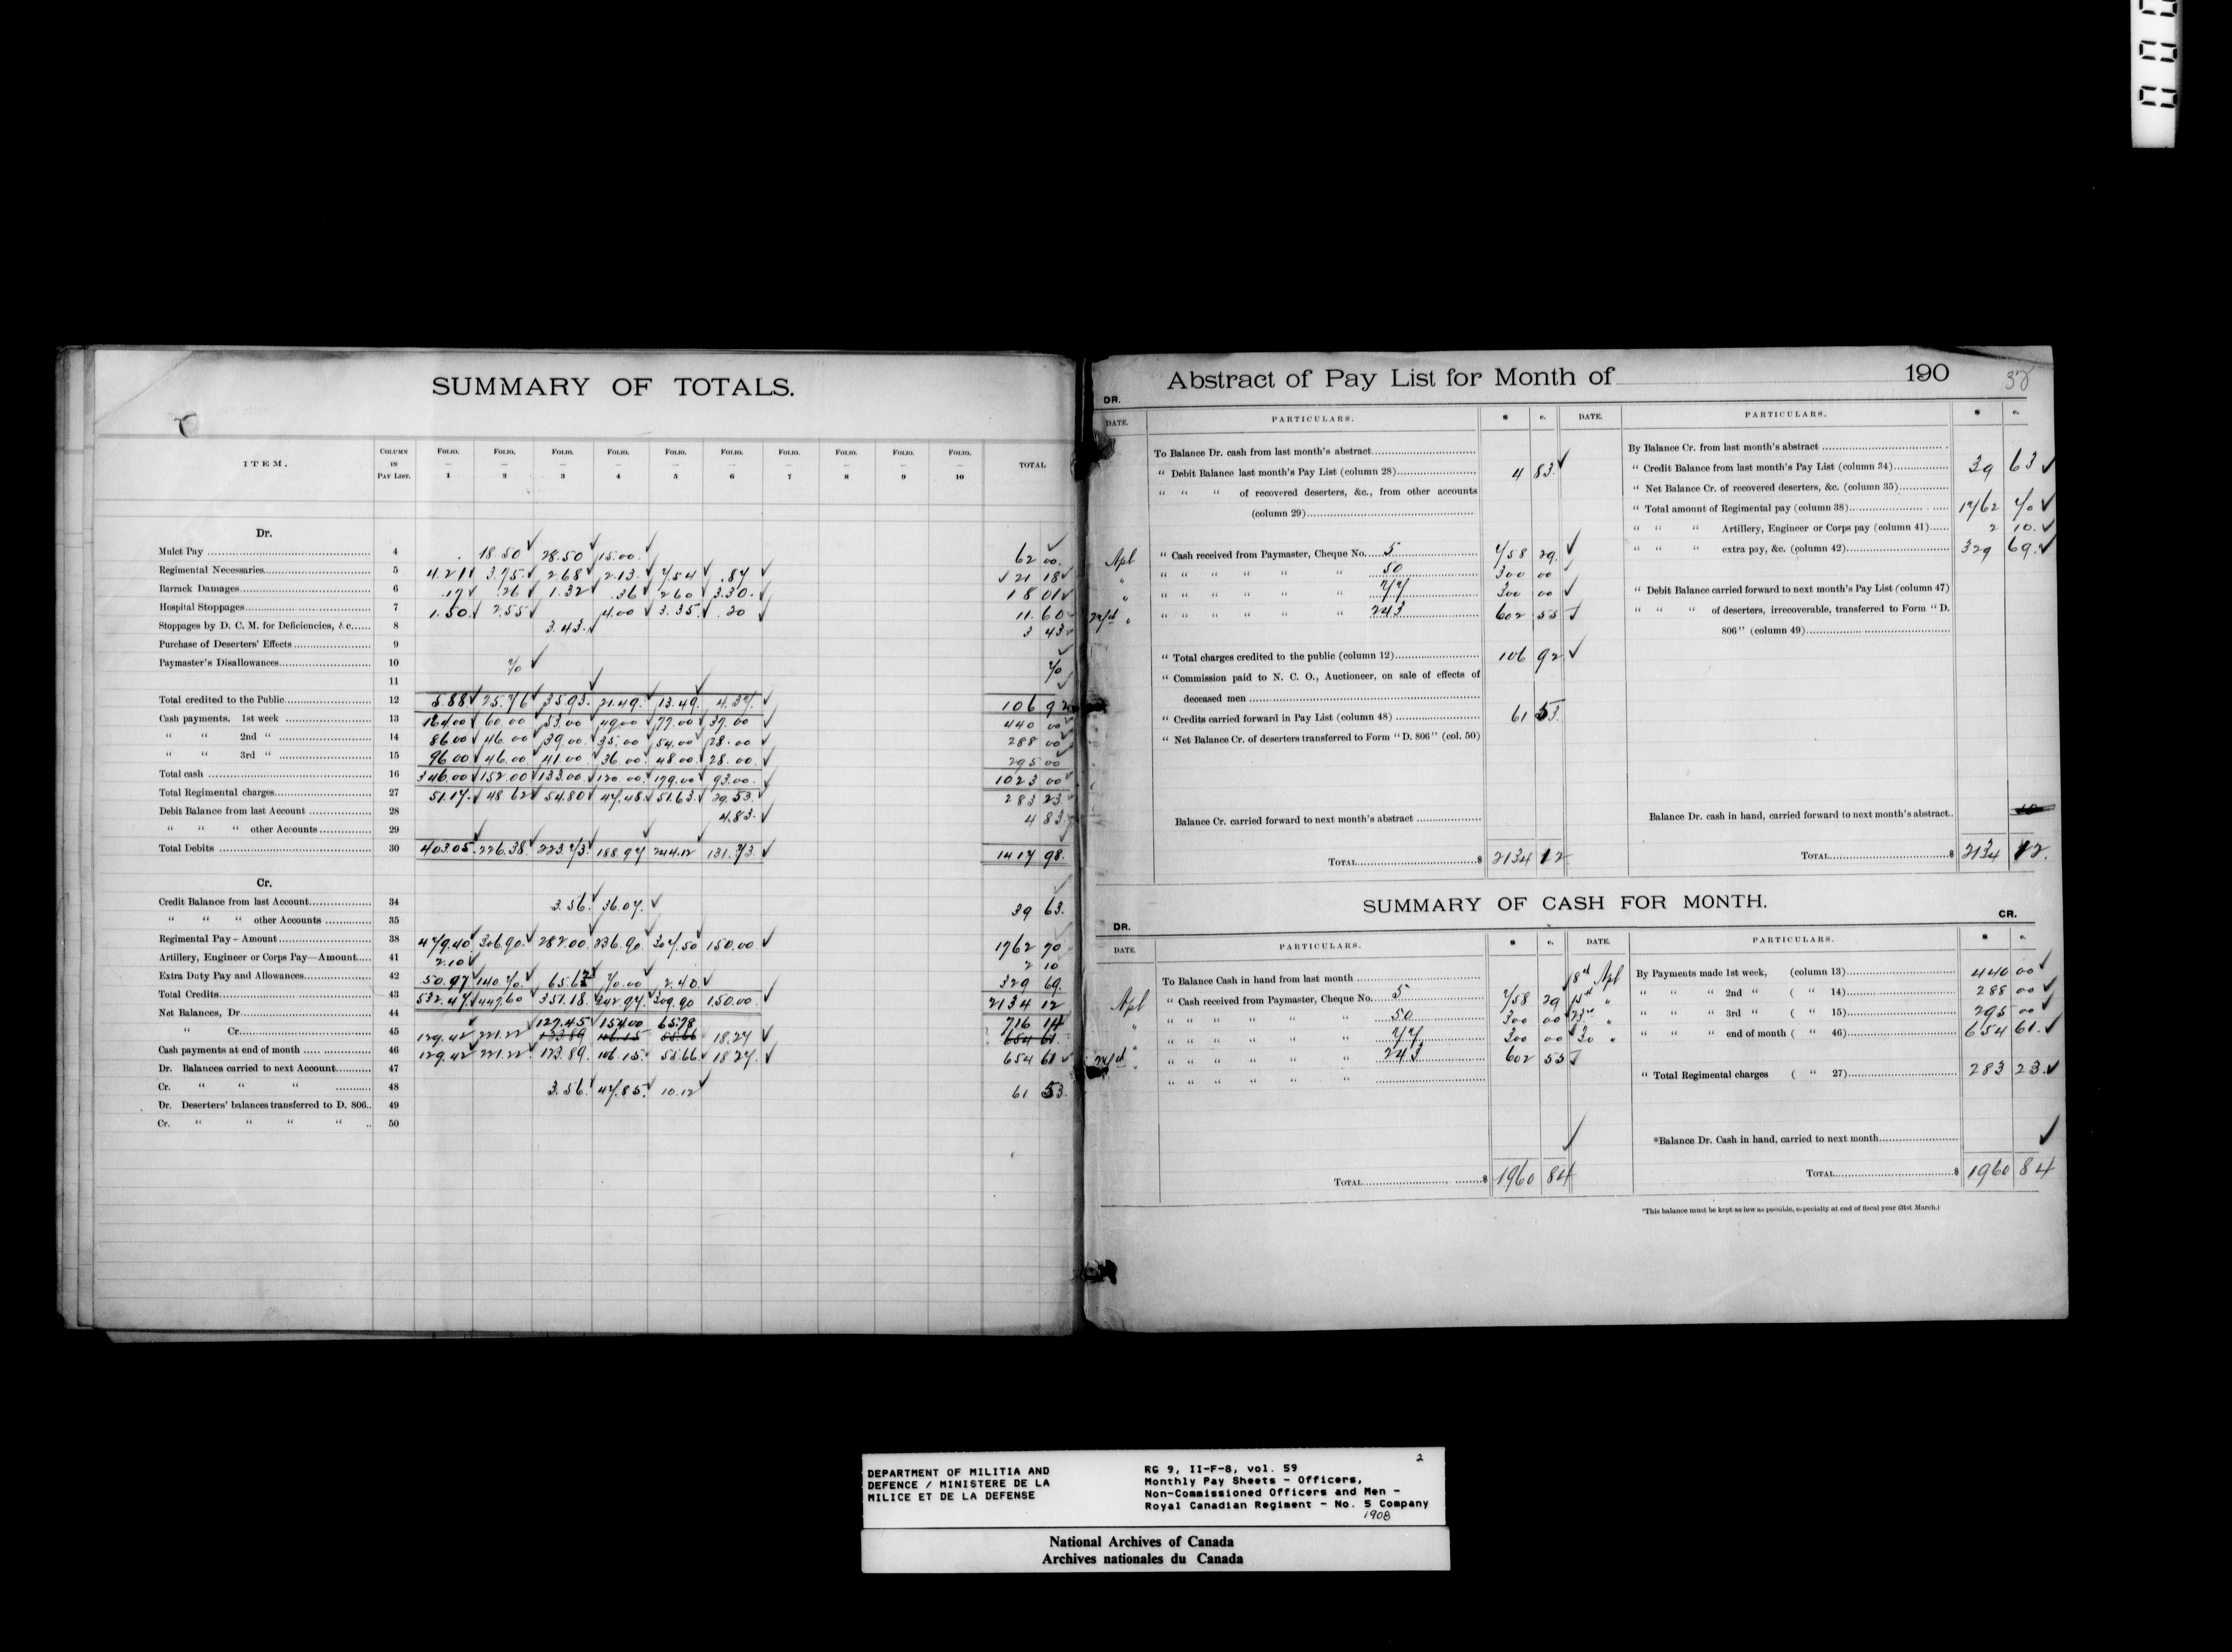 SUMMARY OF TOTALS.
ITEM. COLUMN IN PAY LIST. FOLIO. — 1 FOLIO. — 2 FOLIO. — 3 FOLIO. — 4 FOLIO. — 5 FOLIO. — 6 FOLIO. — 7 FOLIO. — 8 FOLIO. — 9 FOLIO. — 10 TOTAL
Dr.
Mulct Pay 4 18.50 28.50 15.00 62 00
Regimental Necessaries 5 4.21 3.75 2.68 2.13 7.54 .87 21 18
Barrack Damages 6 .17 .26 1.32 .36 2.60 3.30 8 01
Hospital Stoppages 7 1.50 2.55 4.00 3.35 .20 11.60
Stoppages by D. C. M. for Deficiencies, &c 8 3.43 3 43
Purchase of Deserters' Effects 9
Paymaster's Disallowances 10 70 70
11
Total credited to the Public 12 5.88 25.76 35.93 21.49 13.49 4.37 106 92
Cash payments. 1st week 13 164.00 60.00 53.00 49.00 77.00 37.00 440 00
" " 2nd " 14 86.00 46.00 39.00 35.00 54.00 28.00 288 00
" " 3rd " 15 96.00 46.00 41.00 36.00 48.00 28.00 295 00
Total cash 16 346.00 152.00 133.00 120.00 179.00 93.00 1023 00
Total Regimental charges 27 51.17 48.62 54.80 47.48 51.63 29.53 283 23
Debit Balance from last Account 28 4.83 4 83
" " " other Accounts 29
Total Debits 30 403.05 226.38 223.73 188.97 244.12 131.73 1417 98
Cr.
Credit Balance from last Account 34 3.56 36.07 39 63
" " " other Accounts 35
Regimental Pay – Amount 38 479.40 306.90 282.00 236.90 307.50 150.00 1762 70
Artillery, Engineer or Corps Pay—Amount 41 2.10 2 10
Extra Duty Pay and Allowances 42 50.97 140.70 65.62 70.00 2.40 329 69
Total Credits 43 532.47 447.60 351.18 342.97 309.90 150.00 2134 12
Net Balances, Dr 44 127.45 154.00 65.78 716 14
" Cr 45 129.42 221.22 123.89 106.15 55.66 18.27 654 61
Cash payments at end of month 46 129.42 221.22 123.89 106.15 55.66 18.27 654 61
Dr. Balances carried to next Account 47
Cr. " " " 48 3.56 47.85 10.12 61 53
Dr. Deserters' balances transferred to D. 806 49
Cr. " " " " 50
Abstract of Pay List for Month of 190
DR.
DATE. PARTICULARS. $ c. DATE. PARTICULARS. $ c.
To Balance Dr. cash from last month's abstract
" Debit Balance last month's Pay List (column 28) 4 83
" " " of recovered deserters, &c., from other accounts
(column 29)
Apl " Cash received from Paymaster, Cheque No. 5 758 29
" " " " " " 50 300 00
" " " " " " 77 300 00
" " " " " 243 602 55
" Total charges credited to the public (column 12) 106 92
" Commission paid to N. C. O., Auctioneer, on sale of effects of
deceased men
" Credits carried forward in Pay List (column 48) 61 53
" Net Balance Cr. of deserters transferred to Form "D. 806" (col. 50)
Balance Cr. carried forward to next month's abstract
TOTAL $ 2134 12
By Balance Cr. from last month's abstract
" Credit Balance from last month's Pay List (column 34) 39 63
" Net Balance Cr. of recovered deserters, &c. (column 35)
" Total amount of Regimental pay (column 38) 1762 70
" " " Artillery, Engineer or Corps pay (column 41) 2 10
" " " extra pay, &c. (column 42) 329 69
" Debit Balance carried forward to next month's Pay List (column 47)
" " " of deserters, irrecoverable, transferred to Form "D.
806" (column 49)
Balance Dr. cash in hand, carried forward to next month's abstract
TOTAL $ 2134 12
SUMMARY OF CASH FOR MONTH.
DR. CR.
DATE. PARTICULARS. $ c. DATE. PARTICULARS. $ c.
To Balance Cash in hand from last month
Apl " Cash received from Paymaster, Cheque No. 5 758 29
" " " " " " 50 300 00
" " " " " 77 300 00
" " " " " 243 602 55
" " " " "
TOTAL $ 1960 84
8th Apl By Payments made 1st week, (column 13) 440 00
15th " " " " 2nd " ( " 14) 288 00
23rd " " " " 3rd " ( " 15) 295 00
30 " " " " end of month ( " 46) 654 61
" Total Regimental charges ( " 27) 283 23
*Balance Dr. Cash in hand, carried to next month
TOTAL $ 1960 84
*This balance must be kept as low as possible, especially at end of fiscal year (31st March.)
2
DEPARTMENT OF MILITIA AND
DEFENCE / MINISTERE DE LA
MILICE ET DE LA DEFENSE
RG 9, II-F-8, vol. 59
Monthly Pay Sheets - Officers,
Non-Commissioned Officers and Men -
Royal Canadian Regiment - No. 5 Company
1908
National Archives of Canada
Archives nationales du Canada